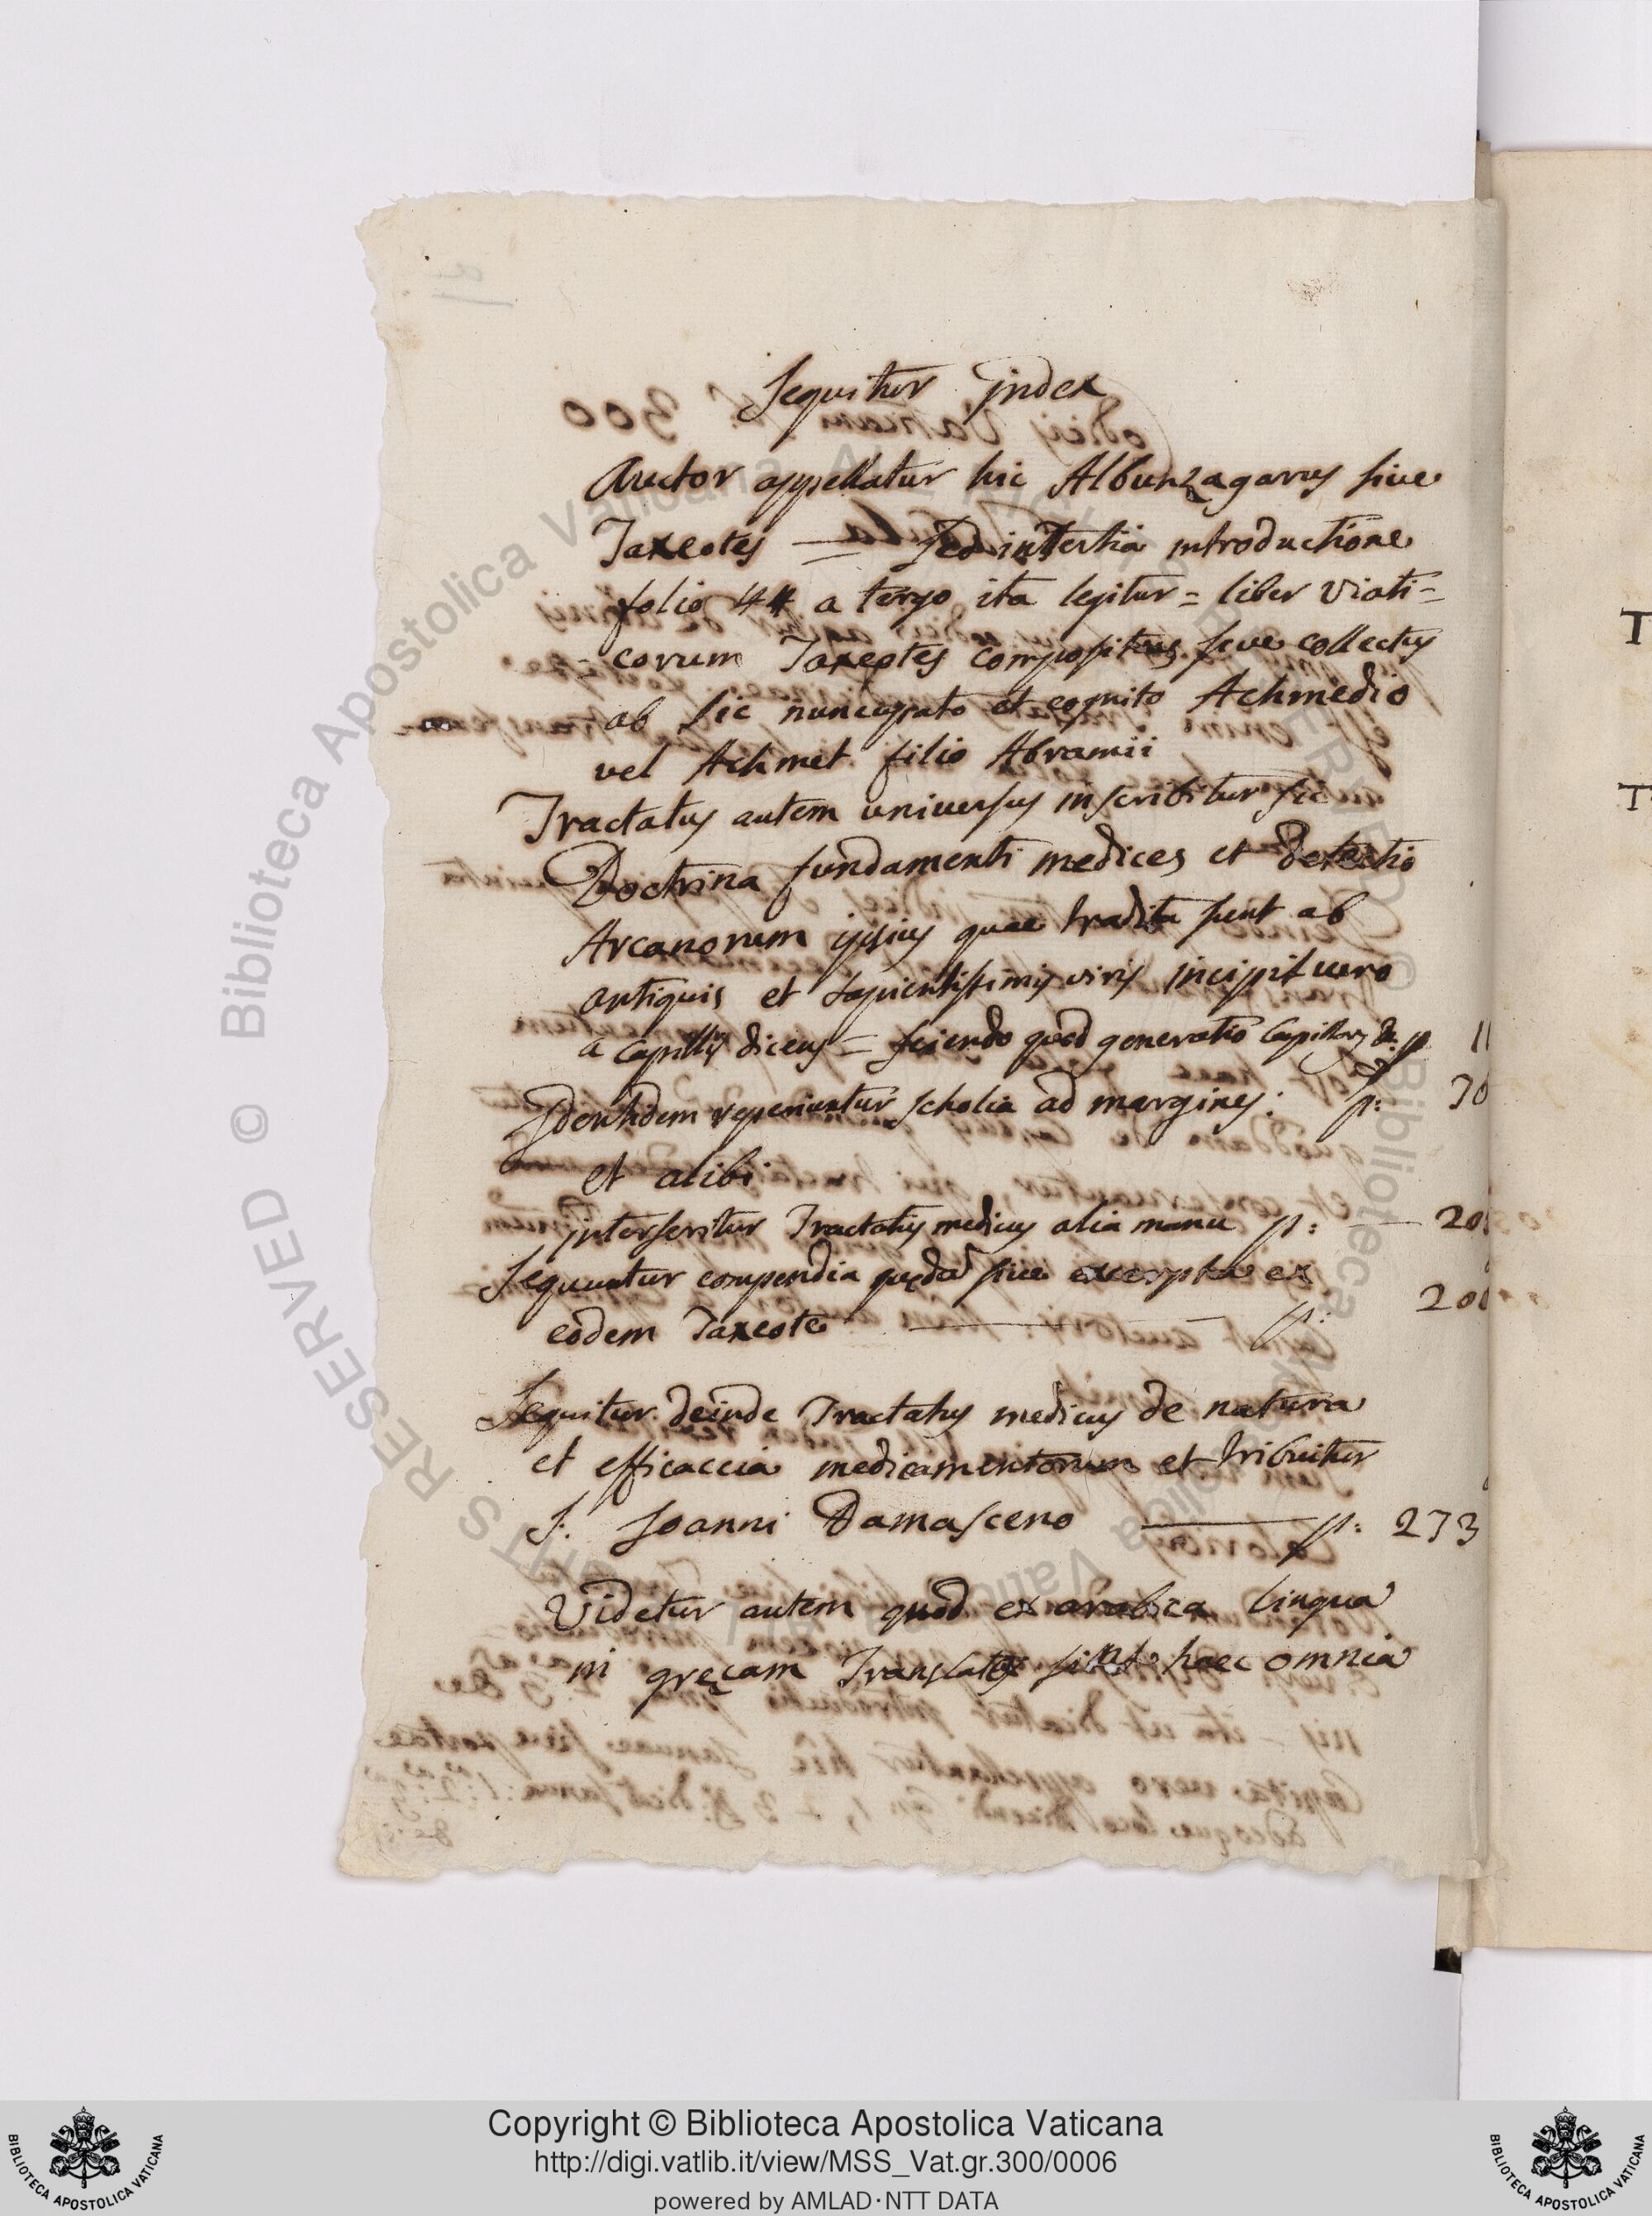 Sequitur index
Auctor appellatur hic Albunzagarus sive
Taxeotes — Sed in tertia introductione
folio 44 a tergo ita legitur = liber viati=
= corum Taxeotes compositus sive collectus
ab sic nuncupato et cognito Achmedio
vel Achmet filio Abramii
Tractatus autem universus inscribitur sic
Doctrina fundamenti medices et detectio
Arcanorum ipsius quae tradita sunt ab
antiquis et sapientissimis viris incipit vero
a capillis dicens = sciendo quod generatio capillorum &c. p 11
Identidem reperiuntur scholia ad margines: p: 30
et alibi
interseritur Tractatus medicus alia manu p: — 20
Sequuntur compendia quędã sive excerpta ex
eodem Taxeote — p: 20
Sequitur deinde Tractatus medicus de natura
et efficaccia medicamentorum et tribuitur
S. Joanni Damasceno — p: 273
Videtur autem quod ex arabica lingua
in gręcam Translata sint haec omnia
© Biblioteca Apostolica Vaticana ALL RIGHTS RESERVED
Copyright © Biblioteca Apostolica Vaticana
http://digi.vatlib.it/view/MSS_Vat.gr.300/0006
powered by AMLAD·NTT DATA
BIBLIOTECA APOSTOLICA VATICANA
BIBLIOTECA APOSTOLICA VATICANA